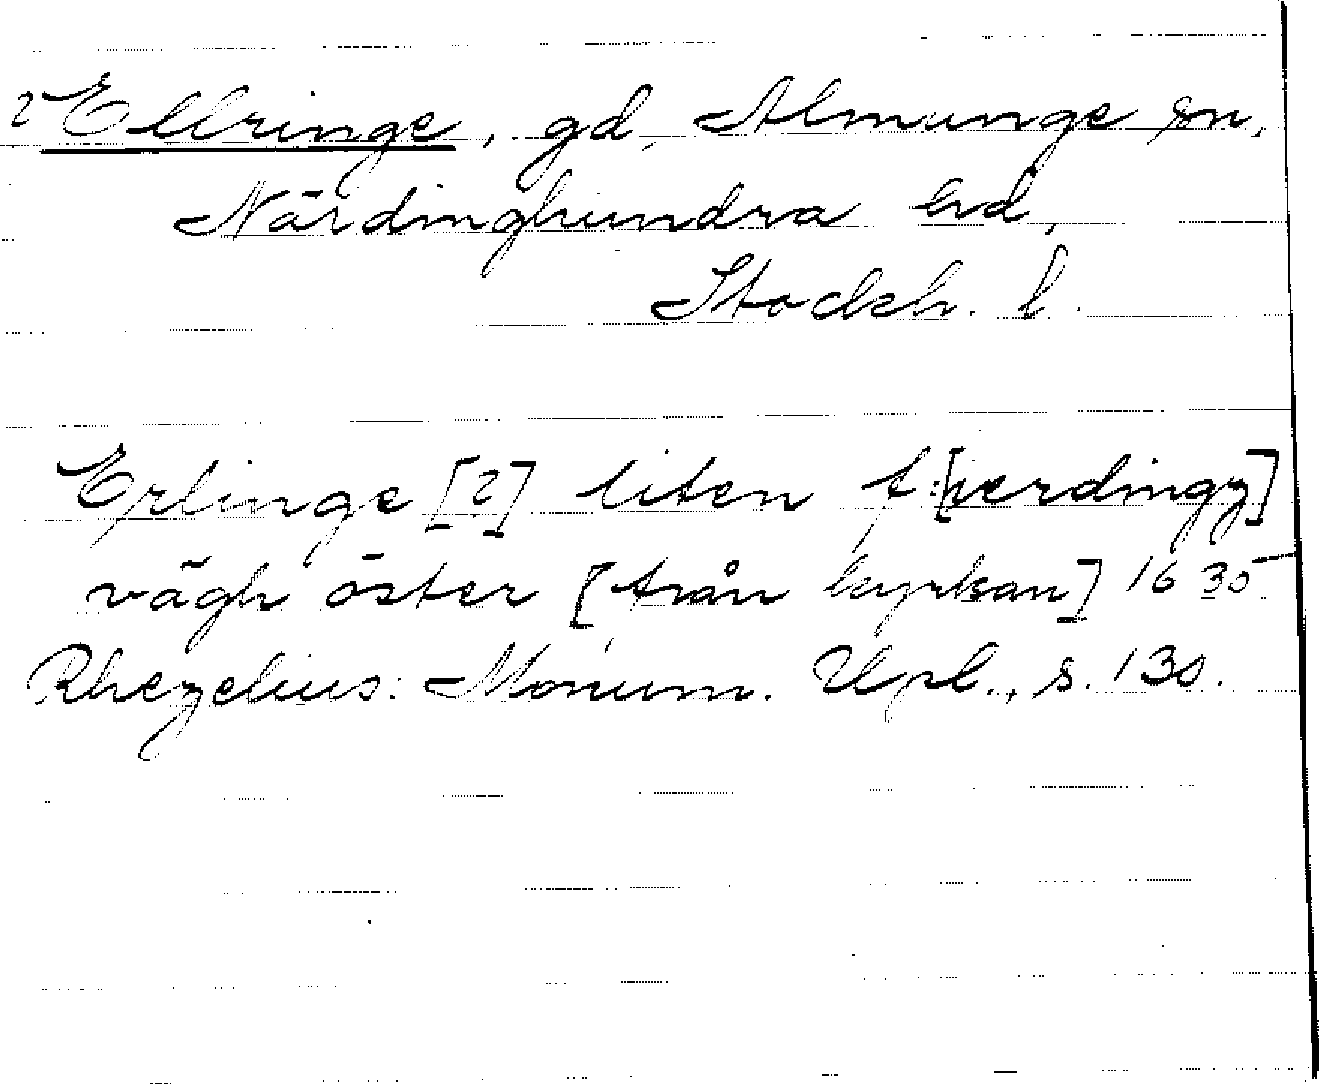 ? Ellringe, gd, Almunge sn,
Närdinghundra hd,
Stockh. l.
Erlinge [?] liten f:[ierdingz]
vägh öster [från kyrkan] 1635
Rhezelius: Monum. Upl., s. 130.